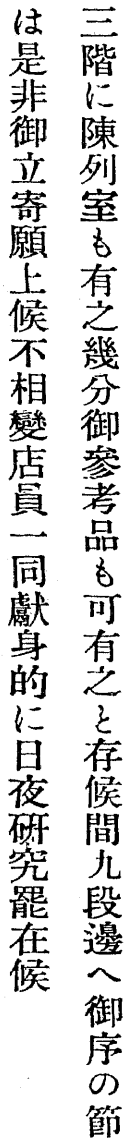 三階に陳列室も有之幾分御參考品も可有之と存候間九段邊へ御序の節
は是非御立寄願上候不相變店員一同獻身的に日夜硏究罷在候